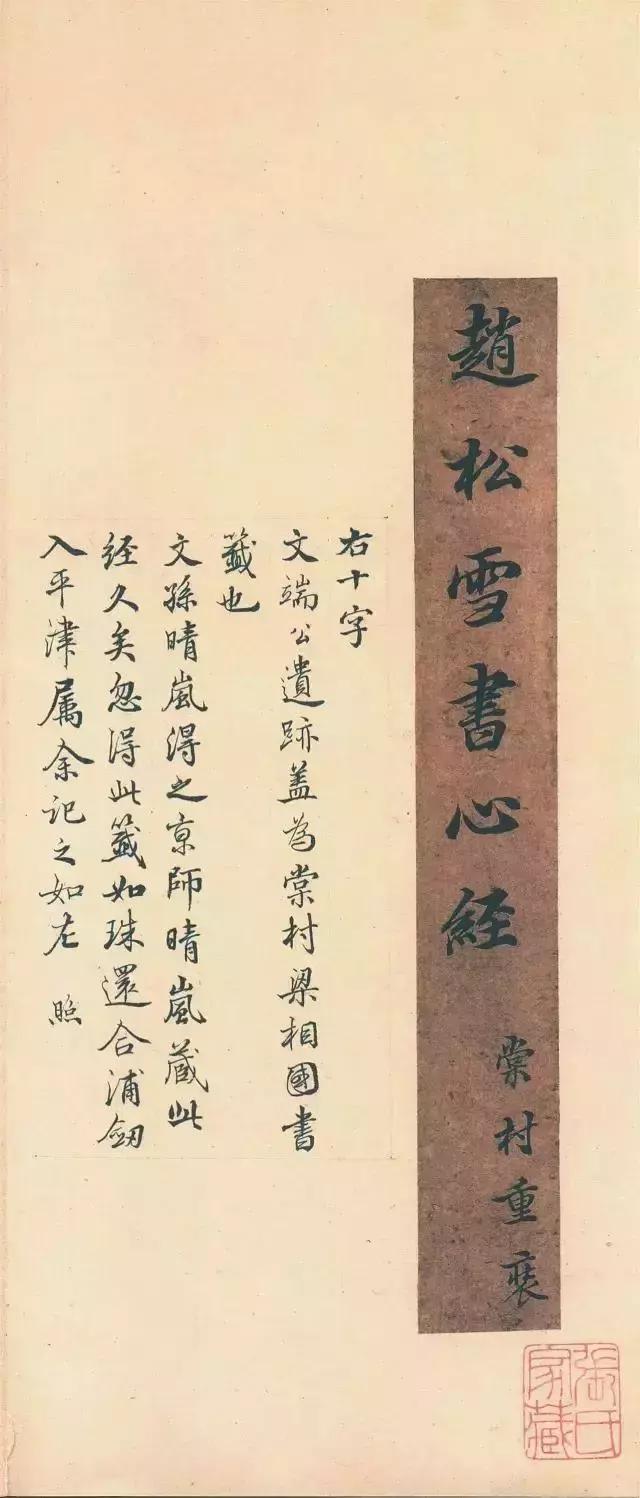 趙松雪書心經
棠村重裝
張氏家藏
右十字
文端公遺跡蓋為棠村梁相國書
籤也
文孫晴嵐得之京師晴嵐藏此
經久矣忽得此籤如珠還合浦劔
入平津属余記之如左 照